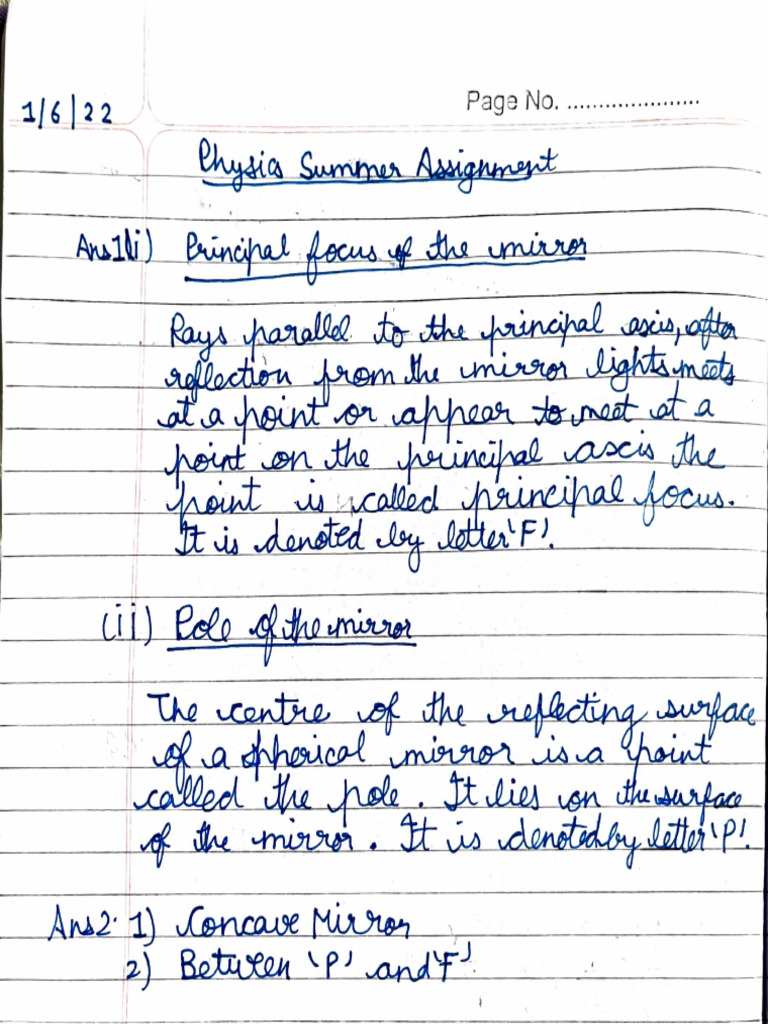 Page No. .....................
1/6/22
Physics Summer Assignment
Ans1(i) Principal focus of the mirror
Rays parallel to the principal axis, after
reflection from the mirror lights meets
at a point or appear to meet at a
point on the principal axis the
point is called principal focus.
It is denoted by letter 'F'.
(ii) Pole of the mirror
The centre of the reflecting surface
of a spherical mirror is a point
called the pole. It lies on the surface
of the mirror. It is denoted by letter 'P'.
Ans2. 1) Concave Mirror
2) Between 'P' and 'F'